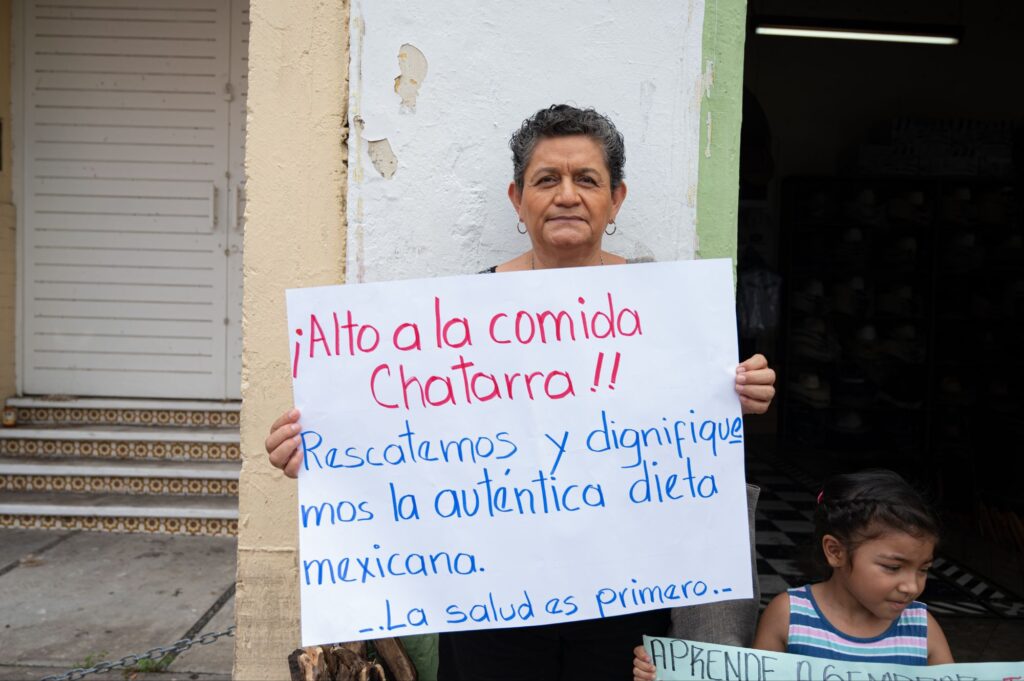 ¡Alto a la comida
Chatarra!!
Rescatemos y dignifique
mos la auténtica dieta
mexicana.
_.La salud es primero._
APRENDE A SEMBRAR